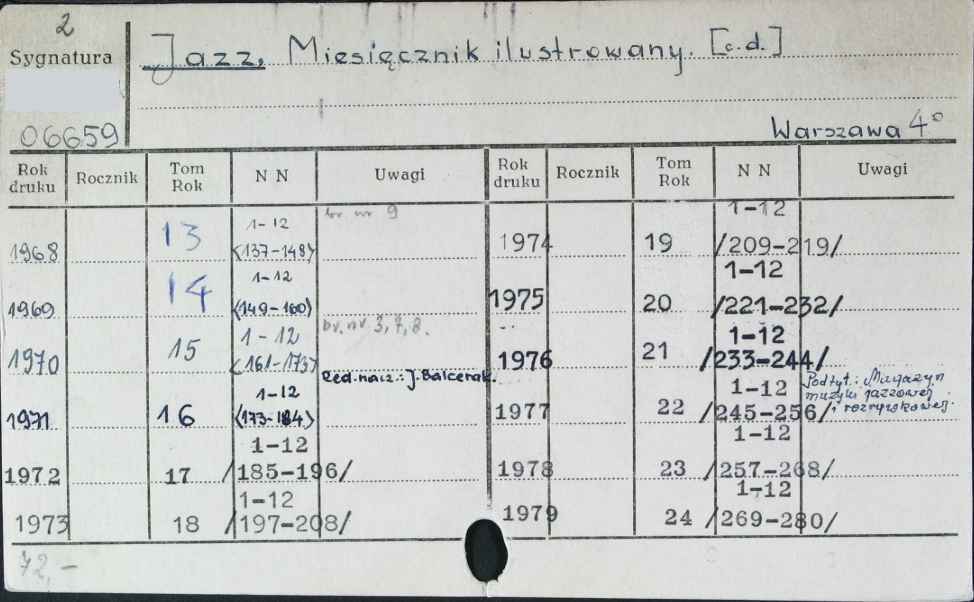 2
Sygnatura
Jazz. Miesięcznik ilustrowany. [c.d.]
06659
Warszawa 4°
Rok druku Rocznik Tom Rok N N Uwagi Rok druku Rocznik Tom Rok N N Uwagi
1968 13 1-12 <137-148> br. nr 9
1969 14 1-12 <149-160>
1970 15 1-12 <161-173> br. nr. 3, 7, 8.
1971 16 1-12 <173-184> Red. nacz.: J. Balcerak.
1972 17 1-12 /185-196/
1973 18 1-12 /197-208/
1974 19 1-12 /209-219/
1975 20 1-12 /221-232/
1976 21 1-12 /233-244/
1977 22 1-12 /245-256/ Podtyt.: Magazyn muzyki jazzowej i rozrywkowej.
1978 23 1-12 /257-268/
1979 24 1-12 /269-280/
72,-